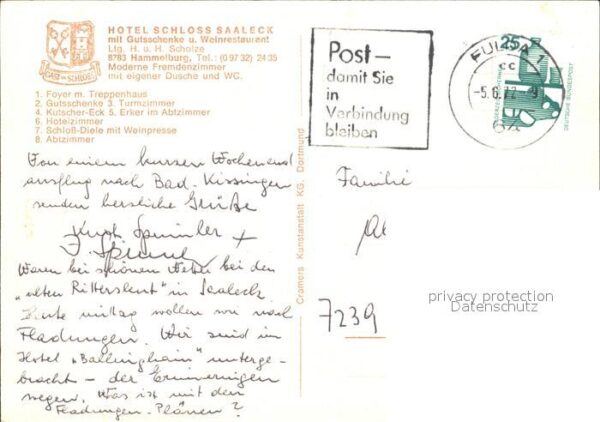 HOTEL SCHLOSS SAALECK
mit Gutsschenke u. Weinrestaurant
Ltg. H. u. H. Scholze
8783 Hammelburg, Tel.: (0 97 32) 24 35
Moderne Fremdenzimmer
mit eigener Dusche und WC.
1. Foyer m. Treppenhaus
2. Gutsschenke 3. Turmzimmer
4. Kutscher-Eck 5. Erker im Abtzimmer
6. Hotelzimmer
7. Schloß-Diele mit Weinpresse
8. Abtzimmer
Von einem kurzen Wochenend
ausflug nach Bad-Kissingen
senden herzliche Grüße
Kurt +
Waren bei schönem Wetter bei den
"alten Rittersleut" in Saaleck.
Heute mittag wollen wir nach
Fladungen. Wir sind im
Hotel "Ballinghain" unterge-
bracht - der Erinnerungen
wegen. Was ist mit den
Fladungen-Plänen?
Cramers Kunstanstalt KG. Dortmund
Post-
damit Sie
in
Verbindung
bleiben
FULDA 1
cc
-5.6.72-9
64
25
DEUTSCHE BUNDESPOST
Familie
7239
privacy protection
Datenschutz